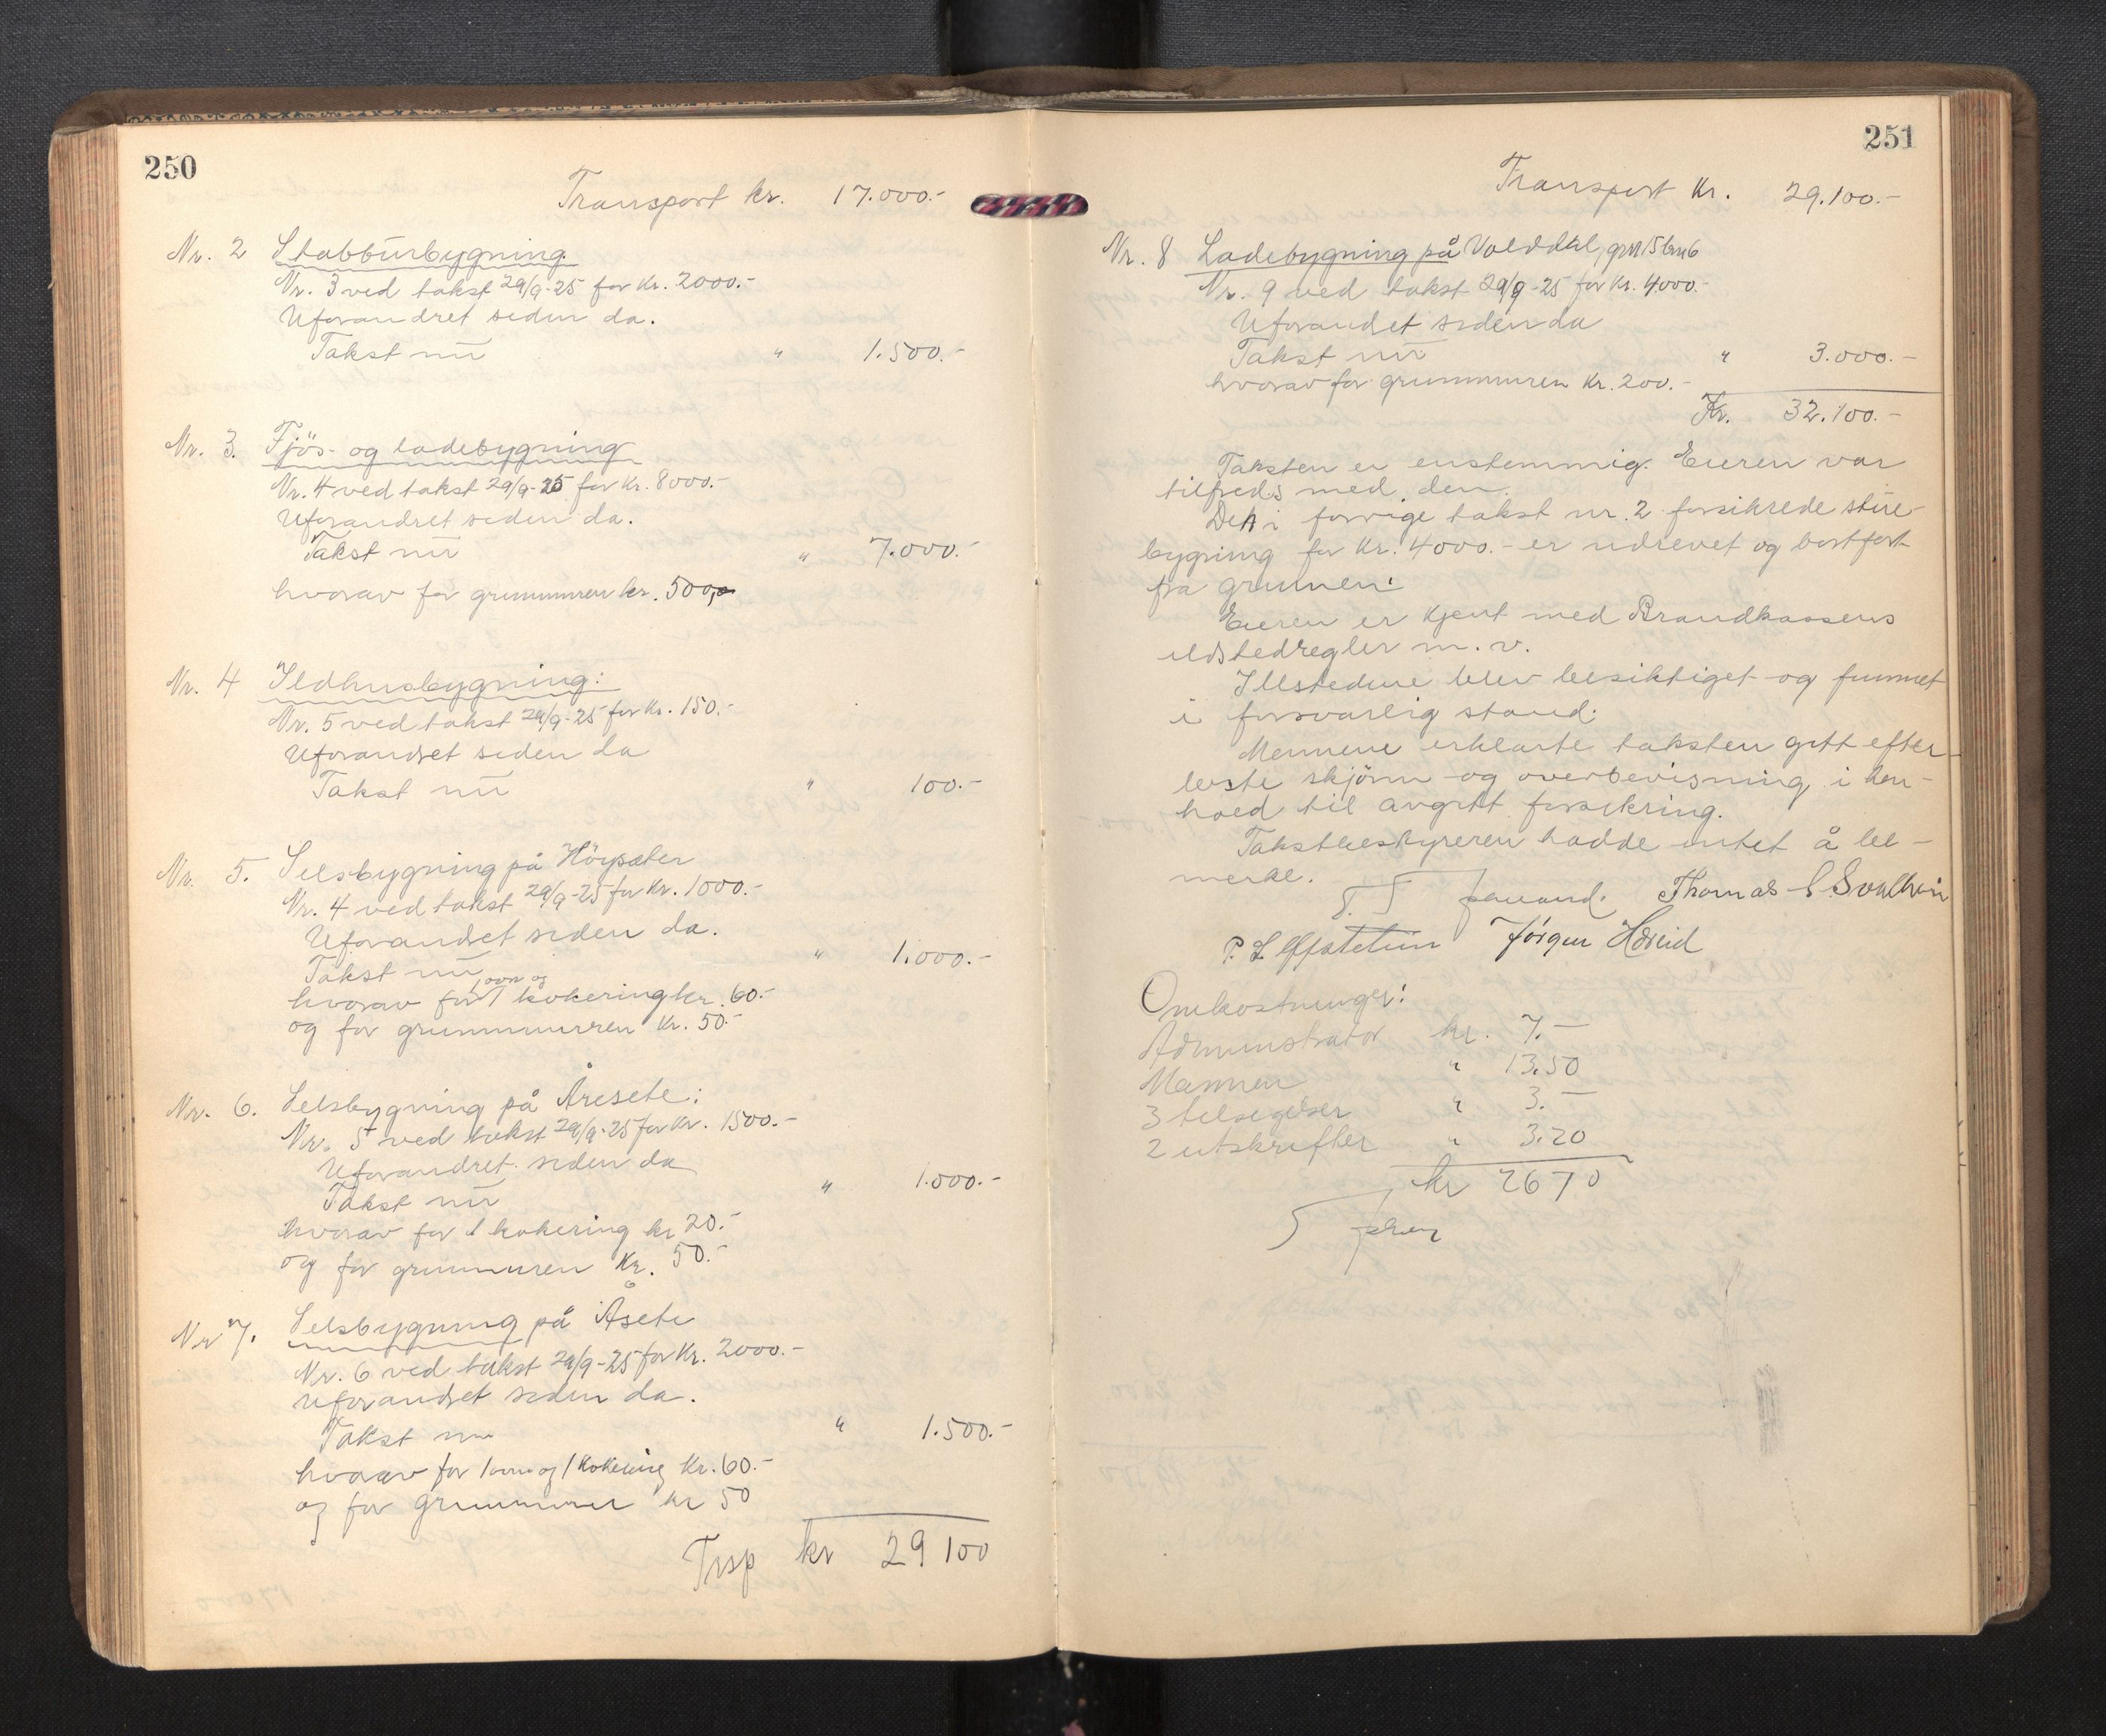 250
Transport kr. 17.000.-
Nr. 2 Stabbursbygning
Nr. 3 ved takst 29/9-25 for Kr. 2000.-
Uforandret siden da.
Takst nu " 1.500.-
Nr. 3. Fjös- og ladebygning
Nr. 4 ved takst 29/9-25 for Kr. 8000.-
Uforandret siden da.
Takst nu " 7.000.-
hvorav for grunnmuren kr. 500,-
Nr. 4 Ildhusbygning:
Nr. 5 ved takst 29/9-25 for Kr. 150.-
Uforandret siden da
Takst nu " 100.-
Nr. 5. Selsbygning på Höysæter
Nr. 4 ved takst 29/9-25 for Kr. 1000.-
Uforandret siden da.
Takst nu " 1.000.-
hvorav for 1 ovn og 1 kokering kr. 60.-
og for grunnmuren Kr. 50.-
Nr. 6. Selsbygning på Åresete:
Nr. 5 ved takst 29/9-25 for Kr. 1500.-
Uforandret siden da
Takst nu " 1.000.-
hvorav for 1 kokering kr 20.-
og for grunnmuren Kr. 50.-
Nr 7. Selsbygning på Åsete
Nr. 6 ved takst 29/9-25 for Kr. 2000.-
Uforandret siden da.
Takst nu " 1.500.-
hvorav for 1 ovn og 1 kokering Kr. 60.-
og for grunnmuren kr 50
Trsp kr 29100
251
Transport Kr. 29.100.-
Nr. 8 Ladebygning på Volddal, gnr 15 bnr 6
Nr. 9 ved takst 29/9-25 for Kr. 4000.-
Uforandret siden da
Takst nu " 3.000.-
hvorav for grunnmuren Kr. 200.-
Kr. 32.100.-
Taksten er enstemmig. Eieren var
tilfreds med den.
Den i forrige takst nr. 2 forsikrede stue-
bygning for Kr. 4000.- er nedrevet og bortfört
fra grunnen.
Eieren er kjent med Brandkassens
ildstedregler m. v.
Illstedene blev besiktiget og funnet
i forsvarlig stand.
Mennene erklærte taksten gitt efter
beste skjönn og overbevisning i hen-
hold til avgitt forsikring.
Takstbestyreren hadde intet å be-
merke.
Thomas S.
P. L. Jörgen
Omkostninger:
Administrator kr. 7.-
Mennene " 13.50
3 tilsigelser " 3.-
2 utskrifter " 3.20
kr 2670